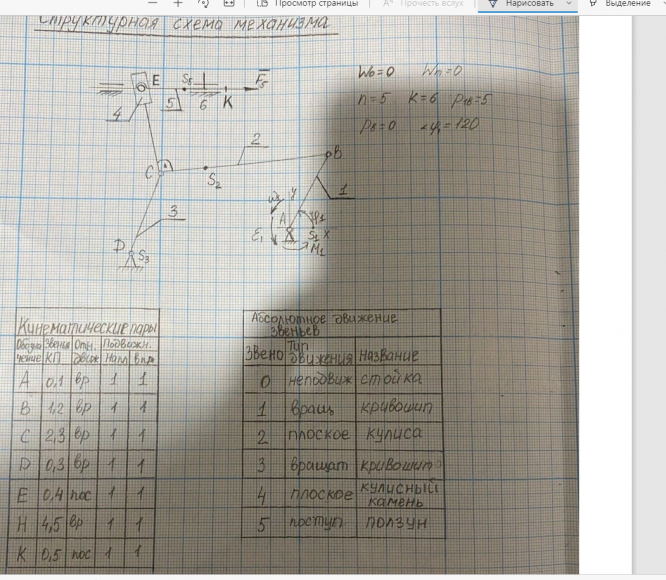 Просмотр страницы
Прочесть вслух
Рисовать
Выделение
Структурная схема механизма
E
S5
F5
4
5
6
K
W0=0 Wп=0
n=5 K=6 P1B=5
Pв=0 ∠φ1=120
2
B
C
S2
1
3
y
A
φ1
S1
x
ε1
M1
D
S3
Кинематические пары
Обозна чение
Звенья КП
Отн. движ
Подвижн.
Налл
В пр.
A 0,1 вр 1 1
B 1,2 вр 1 1
C 2,3 вр 1 1
D 0,3 вр 1 1
E 0,4 пос 1 1
H 4,5 вр 1 1
K 0,5 пос 1 1
Абсолютное движение
звеньев
Звено
Тип движения
название
0 неподвиж стойка
1 вращ кривошип
2 плоское кулиса
3 вращат кривошип
4 плоское кулисный камень
5 поступ ползун